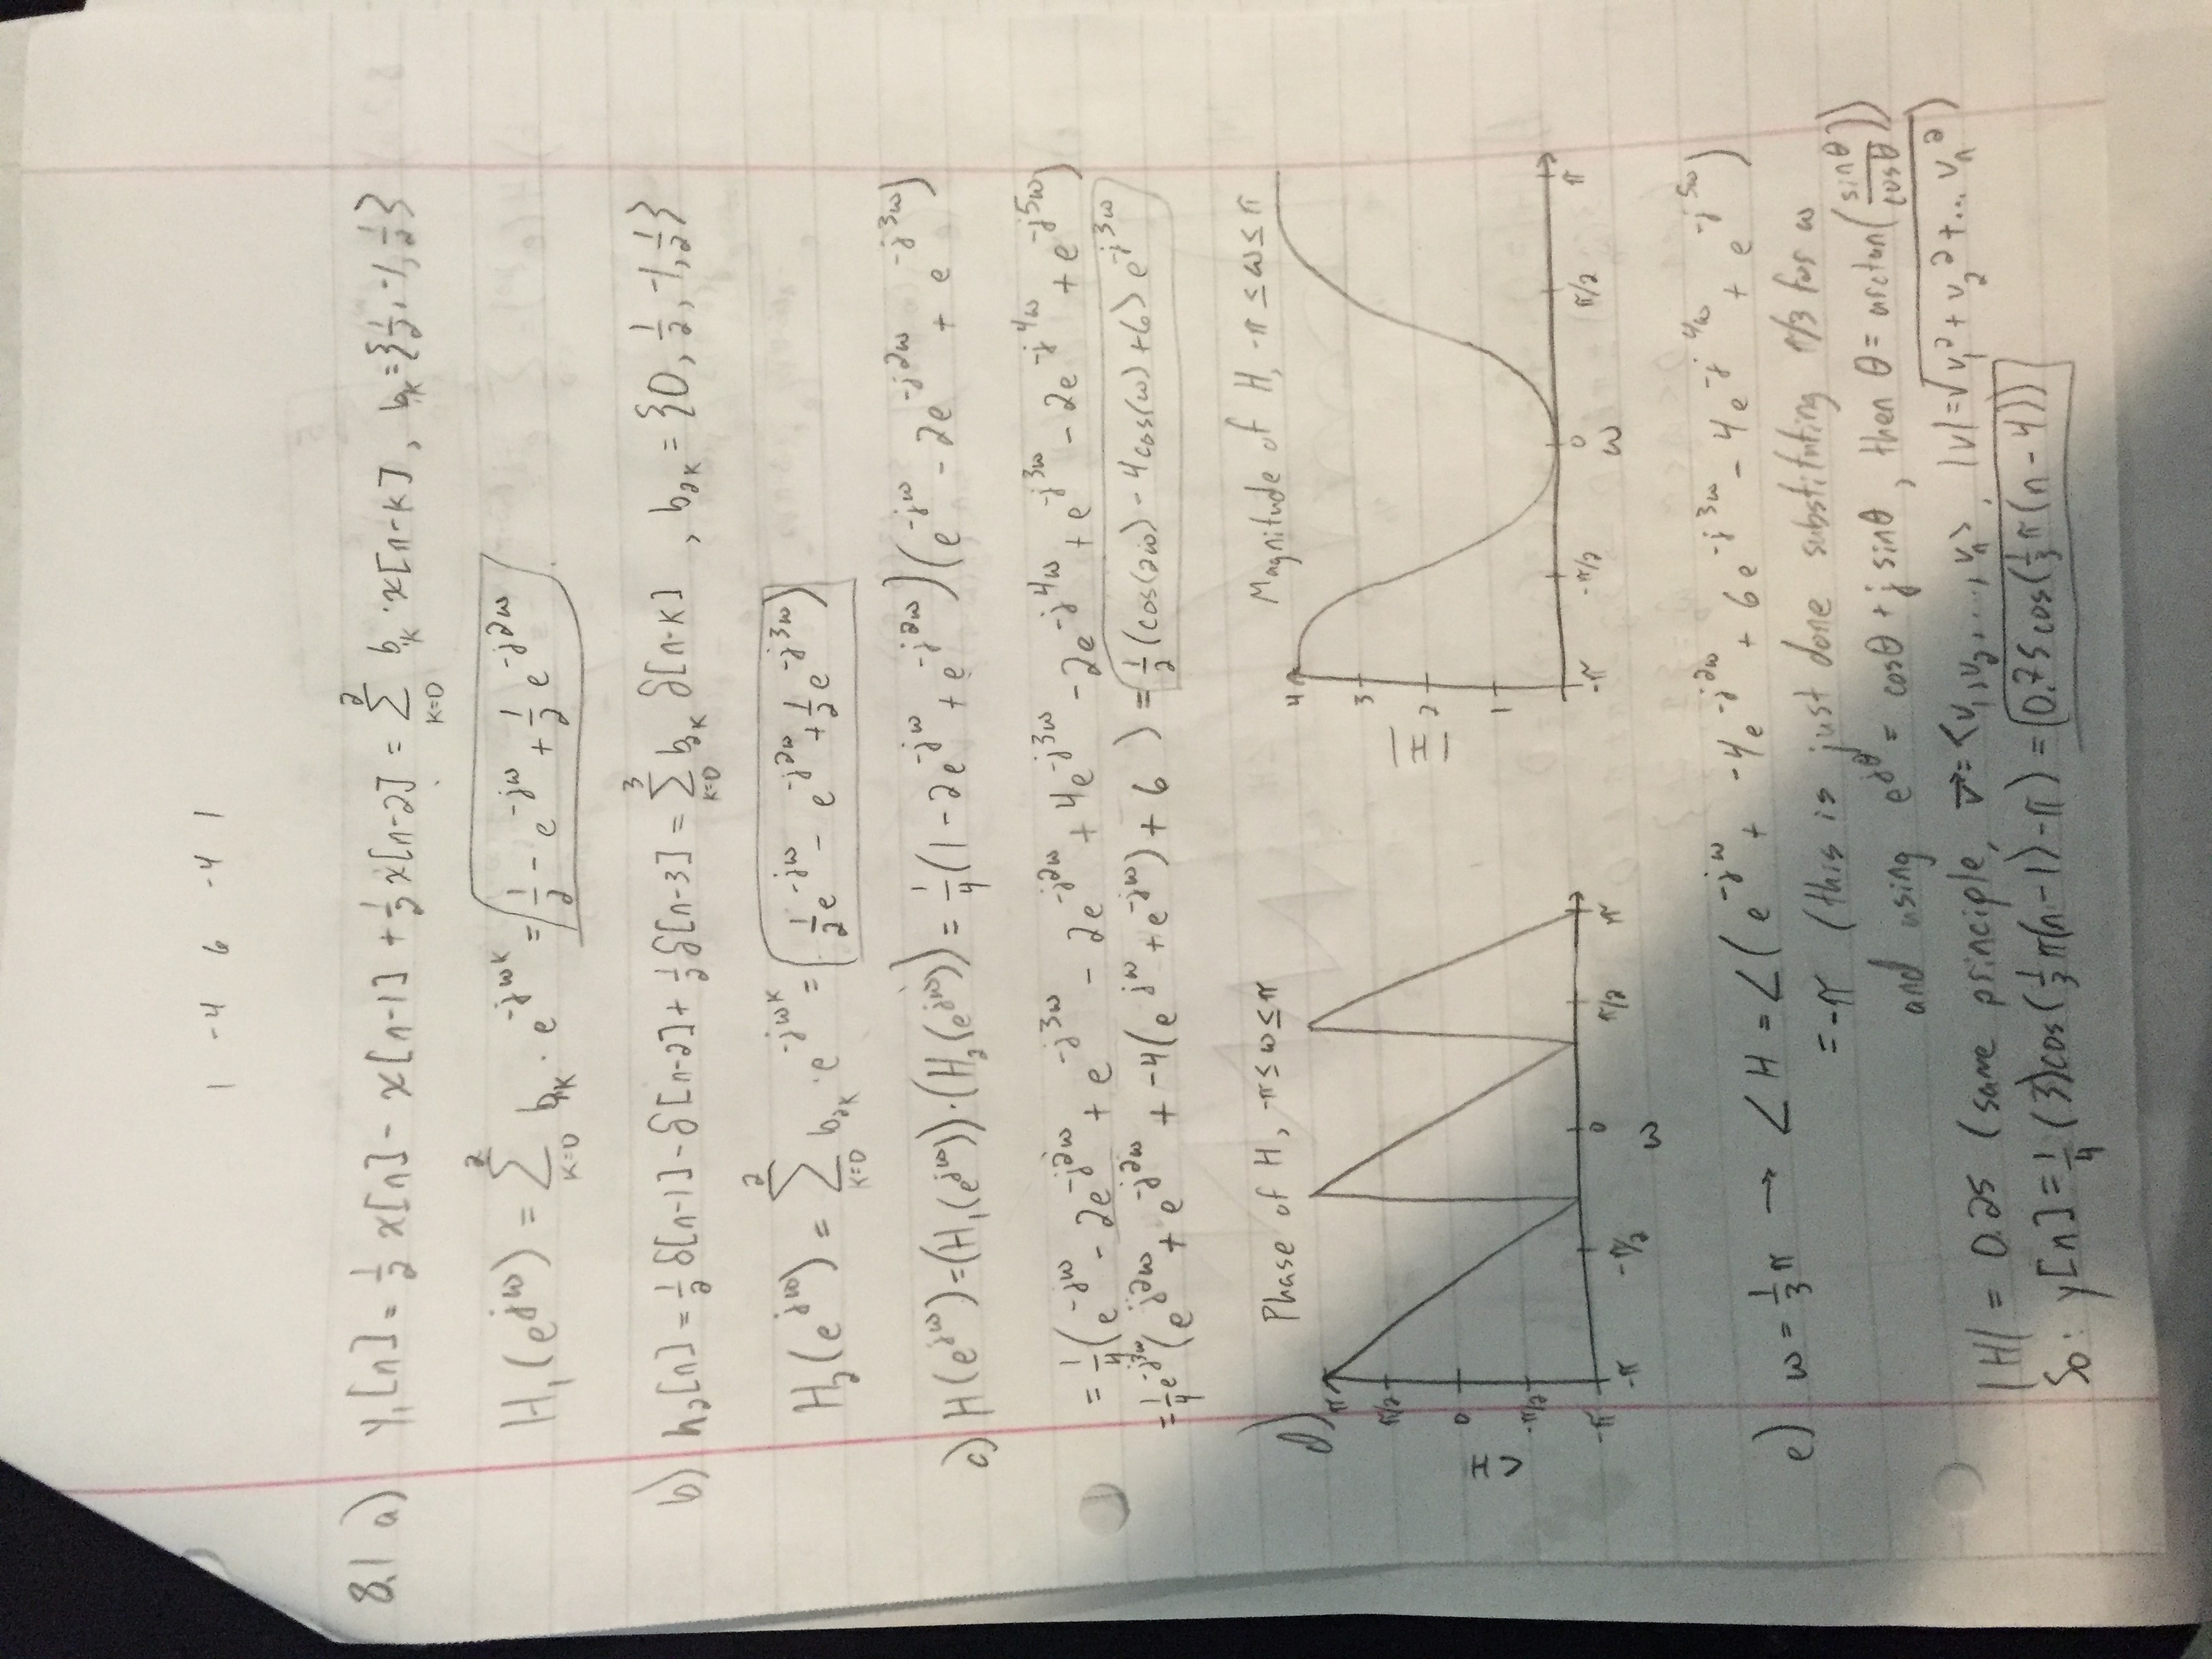 1 -4 6 -4 1
8.1 a) y₁[n] = ½ x[n] - x[n-1] + ½ x[n-2] = Σ_{k=0}^{2} b_k · x[n-k], b_k = {½, -1, ½}
H₁(e^{jω}) = Σ_{k=0}^{2} b_k · e^{-jωk} = ½ - e^{-jω} + ½ e^{-j2ω}
b) h₂[n] = ½ δ[n-1] - δ[n-2] + ½ δ[n-3] = Σ_{k=0}^{3} b_{2k} δ[n-k], b_{2k} = {0, ½, -1, ½}
H₂(e^{jω}) = Σ_{k=0}^{2} b_{2k} · e^{-jωk} = ½ e^{-jω} - e^{-j2ω} + ½ e^{-j3ω}
c) H(e^{jω}) = (H₁(e^{jω})) · (H₂(e^{jω})) = ¼ (1 - 2e^{-jω} + e^{-j2ω})(e^{-jω} - 2e^{-j2ω} + e^{-j3ω})
= ¼ (e^{-jω} - 2e^{-j2ω} + e^{-j3ω} - 2e^{-j2ω} + 4e^{-j3ω} - 2e^{-j4ω} + e^{-j3ω} - 2e^{-j4ω} + e^{-j5ω})
= ¼ e^{-j3ω} (e^{j2ω} + e^{-j2ω} + -4(e^{jω} + e^{-jω}) + 6) = ½ (cos(2ω) - 4cos(ω) + 6) e^{-j3ω}
d) Phase of H, -π ≤ ω ≤ π
π
π/2
0
-π/2
-π
∠H
-π -π/2 0 π/2 π
ω
Magnitude of H, -π ≤ ω ≤ π
4
3
2
1
|H|
-π -π/2 0 π/2 π
ω
e) ω = ⅓π → ∠H = ∠(e^{-jω} + -4e^{-j2ω} + 6e^{-j3ω} - 4e^{-j4ω} + e^{-j5ω})
= -π (this is just done substituting π/3 for ω
and using e^{jθ} = cosθ + j sinθ, then θ = arctan(sinθ/cosθ))
|H| = 0.25 (same principle, v⃗ = <v₁, v₂, ..., vₙ>, |v| = √(v₁² + v₂² + ... vₙ²))
So: y[n] = ¼ (3)cos(⅓π(n-1) - π) = 0.75 cos(⅓π(n-4))